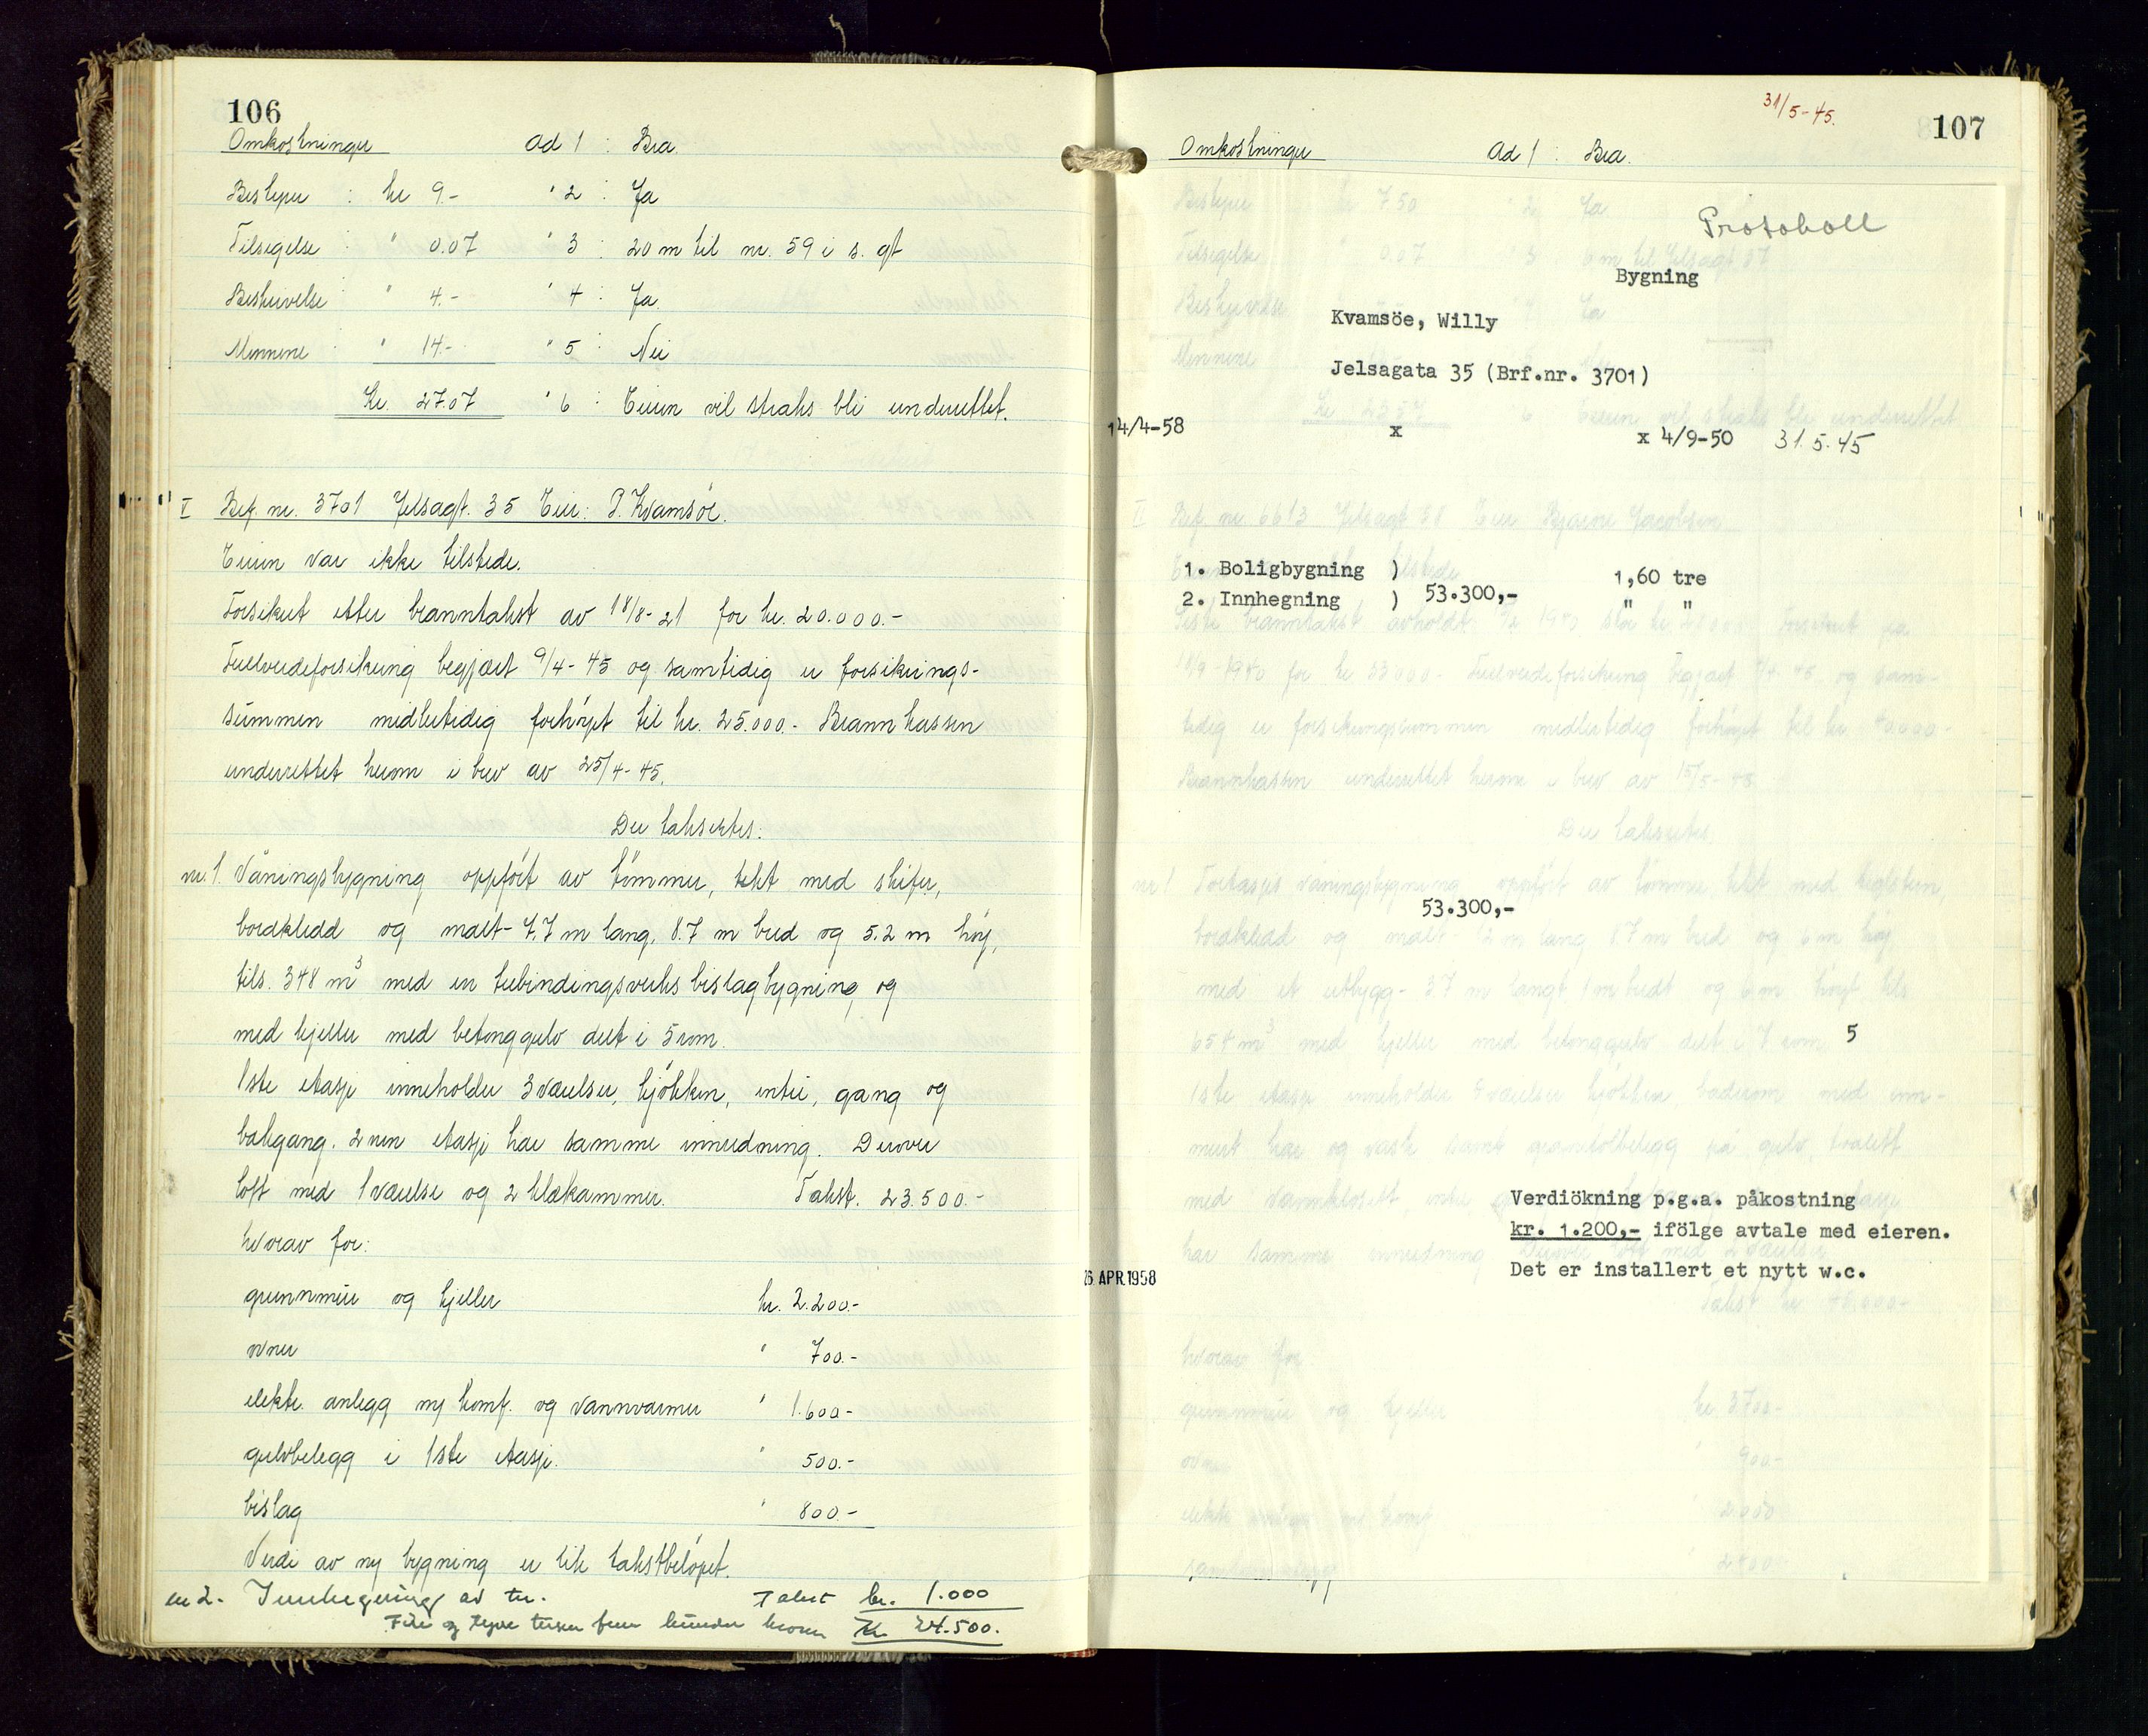 106
Omkostninger Ad 1 : Bra.
Bestyrer : kr 9.- " 2 : Ja
Tilsigelse " 0.07 " 3 : 20 m til nr. 59 i s. gt
Beskrivelse " 4.- " 4 : Ja.
Mennene " 14.- " 5 : Nei
Kr. 27.07 " 6 : Eieren vil straks bli underrettet.
V Brf. nr. 3701 Jelsagt. 35 Eier: P. Kvamsöe.
Eieren var ikke tilstede.
Forsikret etter branntakst av 18/8-21 for kr. 20.000.-
Fullverdeforsikring begjært 9/4-45 og samtidig er forsikrings-
summen midlertidig forhöyet til kr. 25.000.- Brannkassen
underrettet herom i brev av 25/4-45.
Der taksertes:
nr. 1. Våningsbygning oppfört av tömmer, tekt med skifer,
bordkledd og malt- 7.7 m lang, 8.7 m bred og 5.2 m höy,
tils. 348 m³ med en utbindingsverks bislagbygning og
med kjeller med betonggulv delt i 5 rom.
1ste etasje inneholder 3 værelser, kjökken, entre, gang og
bakgang. 2nen etasje har samme innredning. Derover
loft med 1 værelse og 2 klækammer. Takst. 23.500.-
hvorav for:
grunnmur og kjeller kr. 2.200.-
ovner " 700.-
elektr. anlegg ny komf. og vannvarmer " 1.600.-
gulvbelegg i 1ste etasje. " 500.-
bislag " 800.-
Verdi av ny bygning er lik takstbelöpet.
nr 2. Innhegning av tre. Takst kr. 1.000
Fire og tyve tusen fem hundre kroner Kr 24.500.
31/5-45.
107
Omkostninger Ad 1 : Bra.
Protokoll
Bygning
Kvamsöe, Willy
Jelsagata 35 (Brf.nr. 3701)
14/4-58 x x 4/9-50 31.5.45
1. Boligbygning ) 1,60 tre
2. Innhegning ) 53.300,- " "
53.300,-
5
Verdiökning p.g.a. påkostning
kr. 1.200,- ifölge avtale med eieren.
Det er installert et nytt w.c.
16 APR.1958